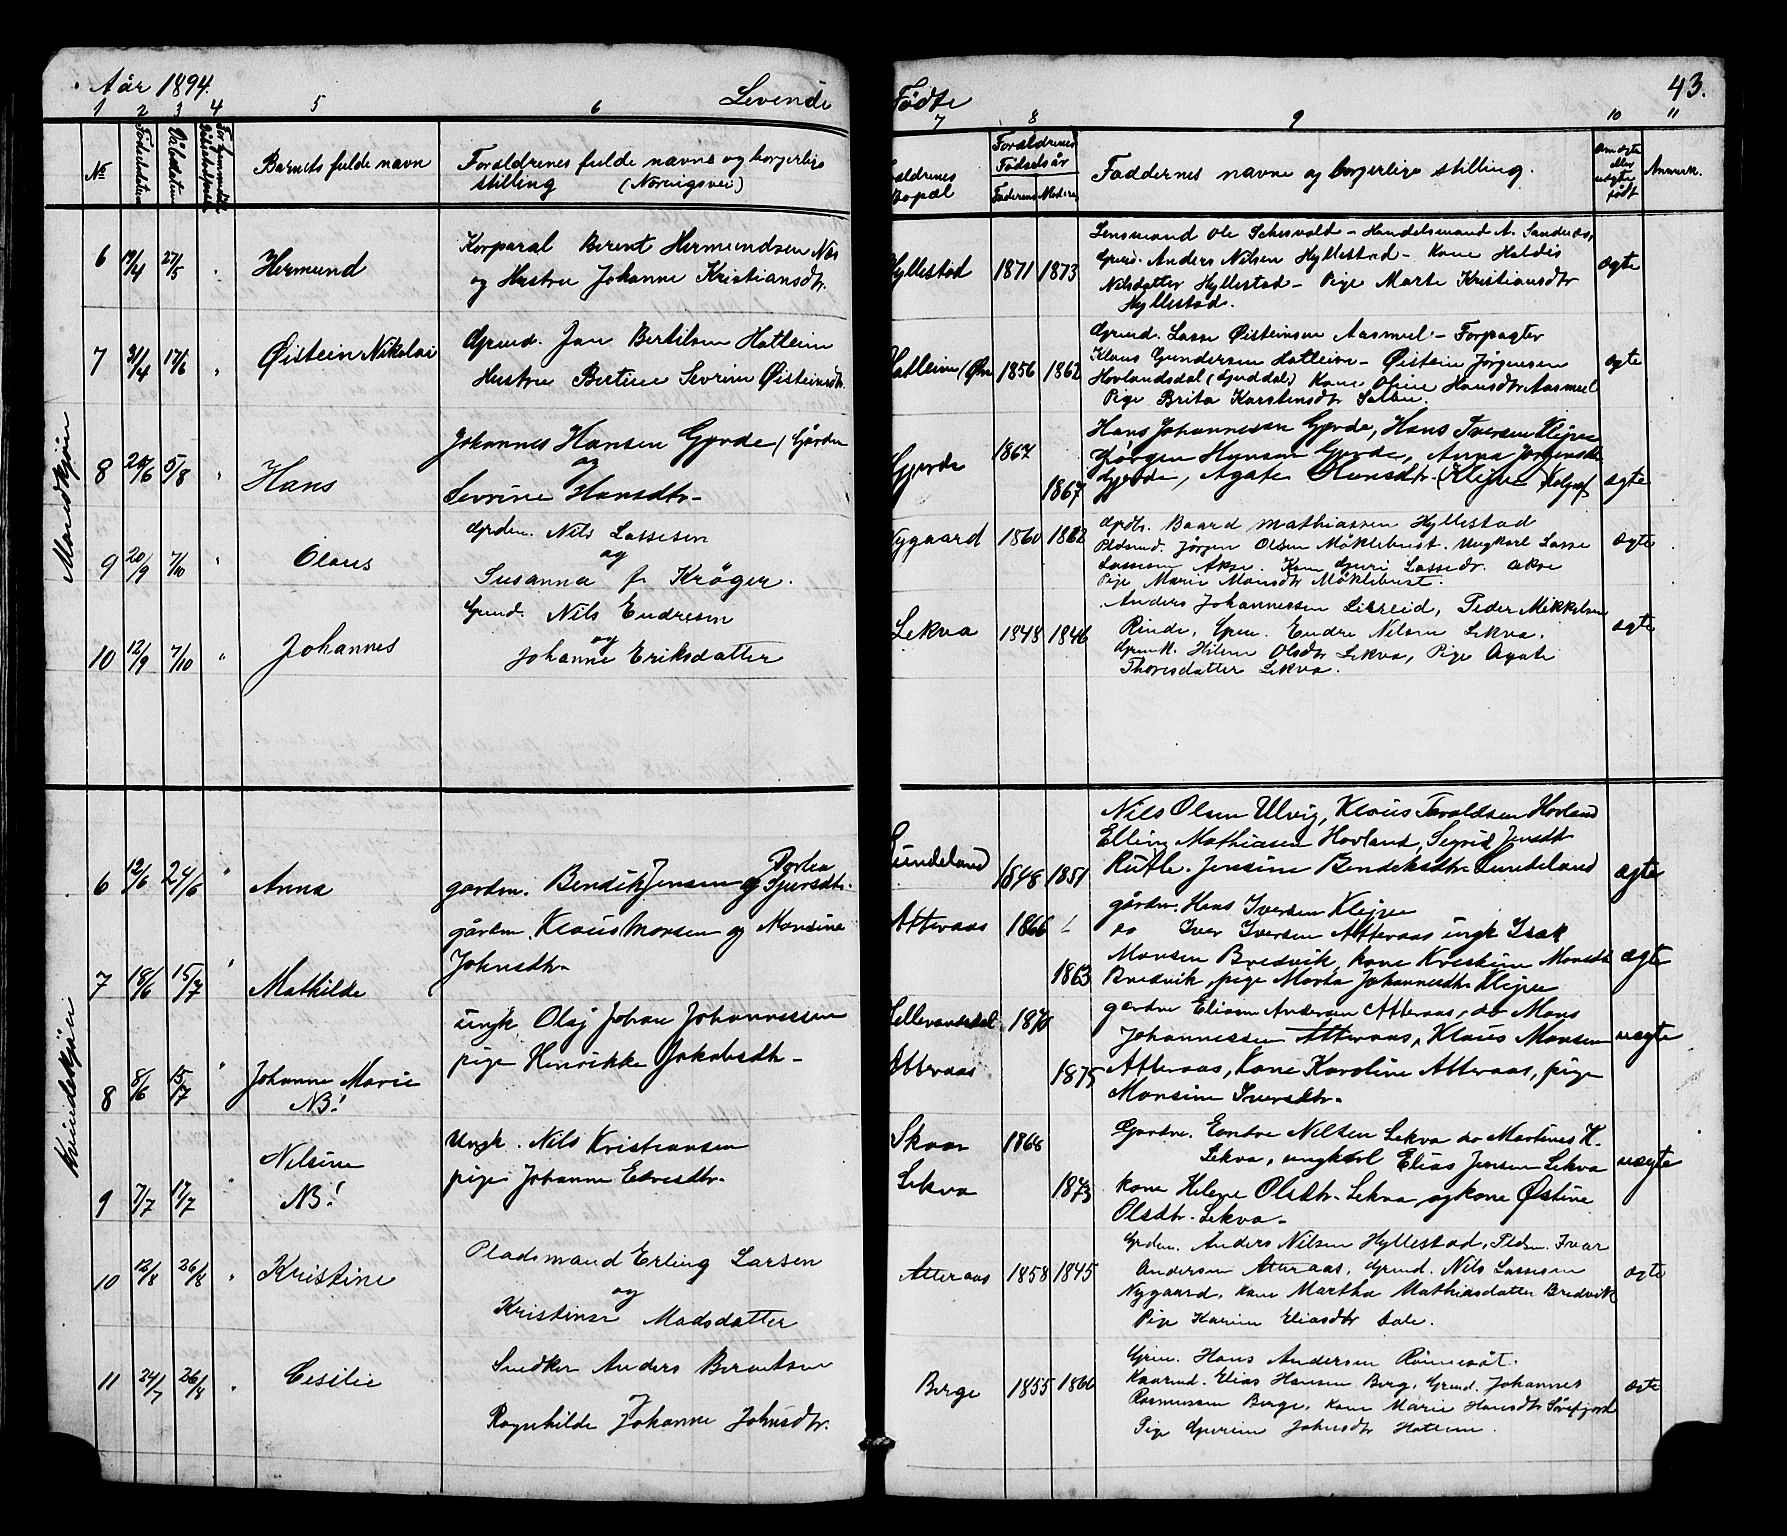 Aar 1894.
Levende
Fødte
43.
1 2 3 4 5 6 7 8 9 10 11
No
Fødselsdatum
Daabsdatum
Barnets fulde navn
Forældrenes fulde navne og borgerlige
stilling (Næringsvei)
Bopæl
Forældrenes
Fødselsår
Faderens
Moderens
Faddernes navne og borgerlige stilling.
Om ægte
eller
uægte
født
Anmerk.
Mandkjøn
6 19/4 27/5 " Hermund
Korporal Berent Hermundsen Næs
og Hustru Johanne Kristiansdtr.
Hyllestad 1871 1873
Lensmand Ole – Handelsmand A. Sandnæs,
Grid. Anders Nilsen Hyllestad – Kone Heldis
Nilsdatter Hyllestad – Pige Marte Kristiansdtr
Hyllestad.
ægte
7 3/4 17/6 " Øistein Nikolai
Grmd. Jan Bertilsen Hatleim
Hustru Bertine Sevrine Øisteinsdtr.
Hatleim 1856 1862
Grmd. Lasse Øisteinsen Aasmul – Forpagter
Klaus Gundersen Hatleim – Øistein Jørgensen
Hovlandsdal Kone Oline Hansdtr Aasmul
Pige Brita Karstensdtr
ægte
8 5/8 " Hans
Johannes Hansen Gjerde
og
Sevrine Hansdtr –
Gjerde 1867
1867
Hans Johannessen Gjerde, Hans Iversen Klejve
Jørgen Hansen Gjerde, Anna Jørgensdtr
Gjerde, Agate Hansdtr. Klejve
ægte
9 20/9 7/10 " Olaus
Grdm. Nils Lassesen
og
Susanna f. Krøger.
Nygaard 1860 1862
Grdbr. Baard Mathiassen Hyllestad
Pldsmd. Jørgen Olsen Möklebust. Ungkarl Lasse
Lassesen Akse. Kone Guri Lassedr. Akse
Pige Marie Monsdtr Möklebust.
ægte
10 12/9 7/10 " Johannes
Grmd. Nils Endresen
og
Johanne Eriksdatter
Lekva 1848 1846
Anders Johannessen Lisreid, Peder Mikkelsen
Rinde, Endre Nilsen Lekva.
Helene Olsdtr Lekva, Pige Agate
Thoresdatter Lekva.
ægte
Kvindekjøn
6 12/6 24/6 " Anna
gardm. Bendik Jensen og Sjursdtr.
Sundeland 1848 1851
Nils Olsen Ulvig, Klaus Taraldsen Hovland
Elling Mathiasen Hovland, Sigrid Jensdtr
Rutle. Jensine Bendeksdtr. Sundeland
ægte
7 18/6 15/7 " Mathilde
gårdm. Klaus Monsen og Monsine
Johnsdtr
Atteraas 1866
1863
gårdm. Hans Iversen Klejve
do Iver Iversen Atteraas ungk Isak
Monsen Bredvik, kone Kristine Monsdtr
Bredvik, pige Marta Johannesdtr Klejve
ægte
8 8/6 15/7 " Johanne Marie
NB!
ungk. Olaj Johan Johannessen
pige Henrikke Jakobsdtr –
Atteraas 1875
gardm Elias Andersen Atteraas, do Mons
Johannessen Atteraas, Klaus Monsen
Atteraas, Kone Karoline Atteraas, pige
Monsine Iversdtr.
uægte
9 7/7 17/7 " Nilsine
NB!
Ungk. Nils Kristiansen
pige Johanne Edvesdtr.
Skaar
Lekva 1873
Gardm. Endre Nilsen Lekva do Martines K.
Lekva, ungkarl Elias Jensen Lekva
kone Helene Olsdtr. Lekva og kone Østine
Olsdtr. Lekva –
uægte
10 12/8 26/8 " Kristine
Pladsmand Erling Larsen
og
Kristense Madsdatter
Atteraas 1858 1845
Grdm. Anders Nilsen Hyllestad, Pldsm. Ivar
Andersen Atteraas, Grmd. Nils Lassesen
Nygaard, Kone Martha Mathiasdatter Bredvik
Pige Karine Eliasdtr Dale.
ægte
11 24/7 26/8 " Cesilie
Snedker Anders Berentsen
og
Ragnhilde Johanne Johnsdtr.
Berge 1855 1866
Hans Andersen
Kaarmd. Elias Hansen Berg, Grmd. Johannes
Rasmussen Berge, Kone Marie Hansdtr Sörefjord
Pige Johnsdtr Hatlem.
ægte